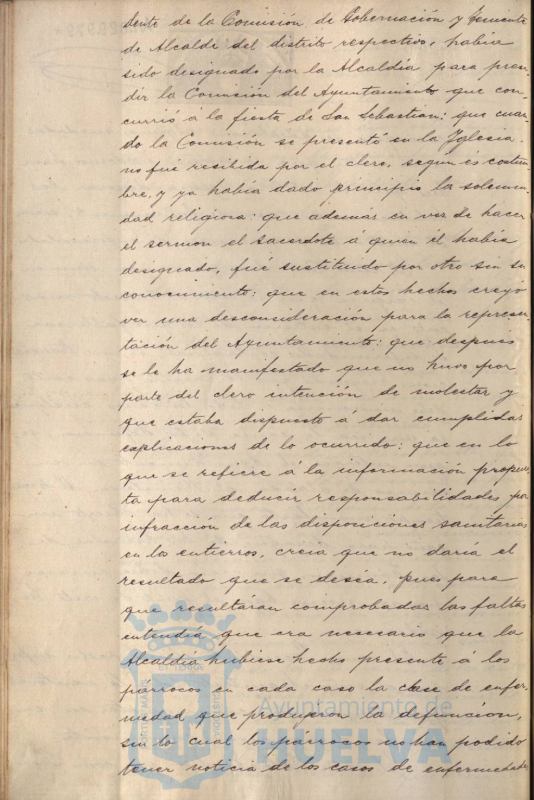 dente de la Comisión de Gobernación y Teniente
de Alcalde del distrito respectivo, habia
sido designado por la Alcaldia para presi-
dir la Comisión del Ayuntamiento que con-
currió á la fiesta de San Sebastian: que cuan-
do la Comisión se presentó en la Yglesia,
no fué recibida por el clero, según es costum-
bre, y ya habia dado principio la solemni-
dad religiosa: que además en vez de hacer
el sermon el sacerdote á quien él habia
designado, fué sustituido por otro sin su
conocimiento: que en estos hechos creyó
ver una desconsideración para la represen-
tación del Ayuntamiento: que después
se le ha manifestado que no huvo por
parte del clero intención de molestar y
que estaba dispuesto á dar cumplidas
explicaciones de lo ocurrido: que en lo
que se refiere á la información propues-
ta para deducir responsabilidades por
infracción de las disposiciones sanitarias
en los entierros, creia que no daría el
resultado que se desea, pues para
que resultáran comprobadas las faltas
entendiá que era necesario que la
Alcaldia hubiese hecho presente á los
párrocos en cada caso la clase de enfer-
medad que produjeron la defunción,
sin lo cual los párrocos no han podido
tener noticia de los casos de enfermedades
Ayuntamiento de
HUELVA